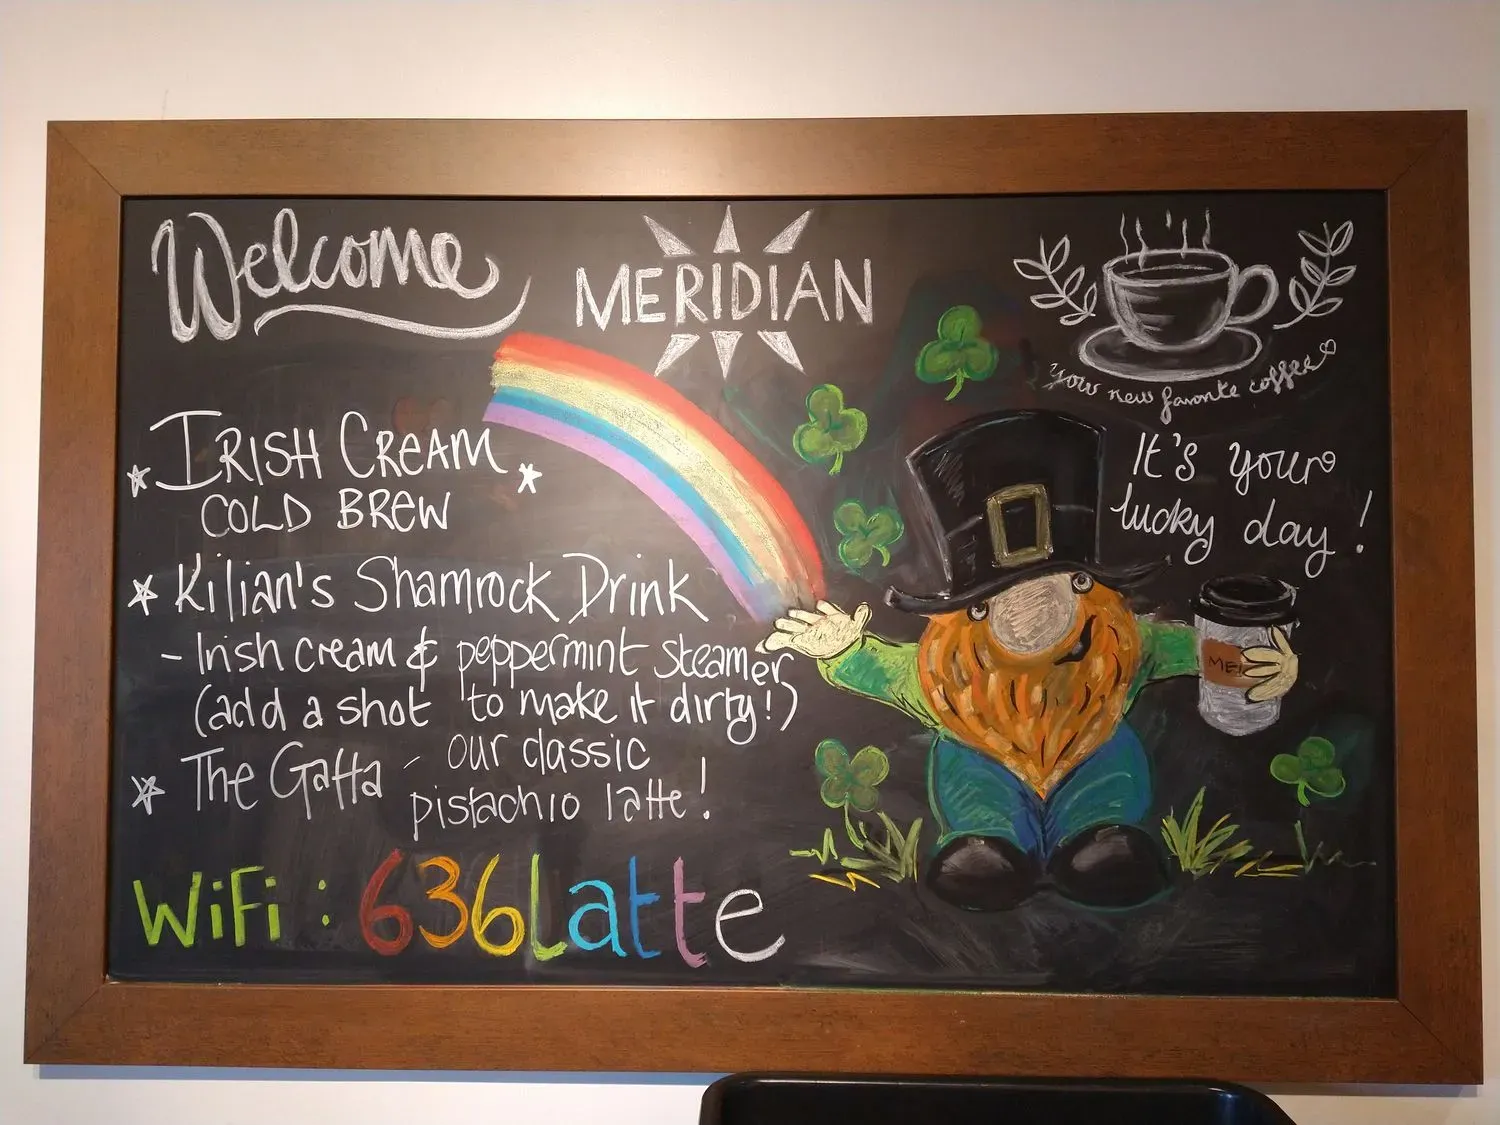 Welcome
MERIDIAN
your new favorite coffee
IRISH CREAM
COLD BREW
It's your
lucky day!
Kilian's Shamrock Drink
- Irish cream & peppermint steamer
(add a shot to make it dirty!)
The Gatta - our classic
pistachio latte!
ME
WiFi: 636Latte